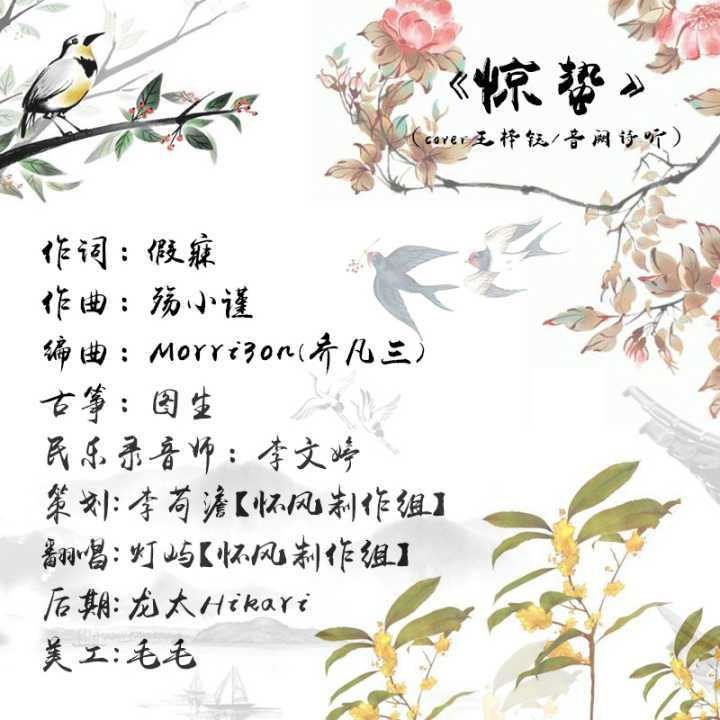 《惊蛰》
(cover王梓钰/音阙诗听)
作词：假寐
作曲：殇小谨
编曲：Morri3on(乔凡三)
古筝：图生
民乐录音师：李文婷
策划:李荷澹【怀风制作组】
翻唱:灯屿【怀风制作组】
后期:龙太Hikari
美工:毛毛